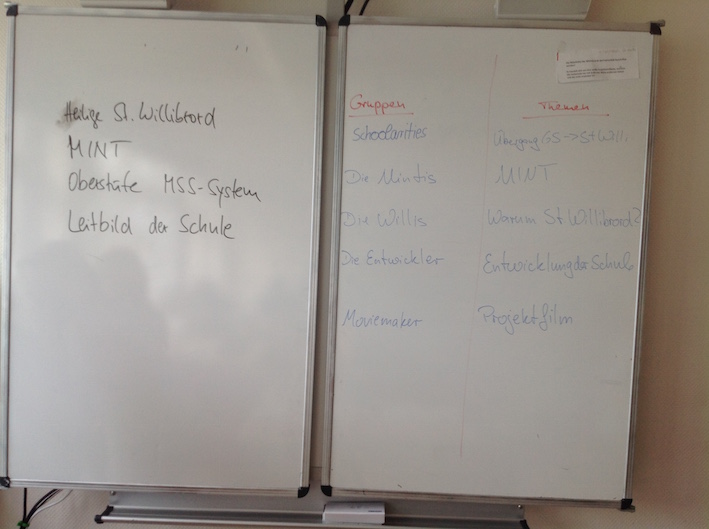 Heilige St. Willibrord
MINT
Oberstufe MSS-System
Leitbild der Schule
Gruppen Themen
Schoolarities Übergang GS → St. Willi
Die Mintis MINT
Die Willis Warum St. Willibrord?
Die Entwickler Entwicklung der Schule
Moviemaker Projektfilm